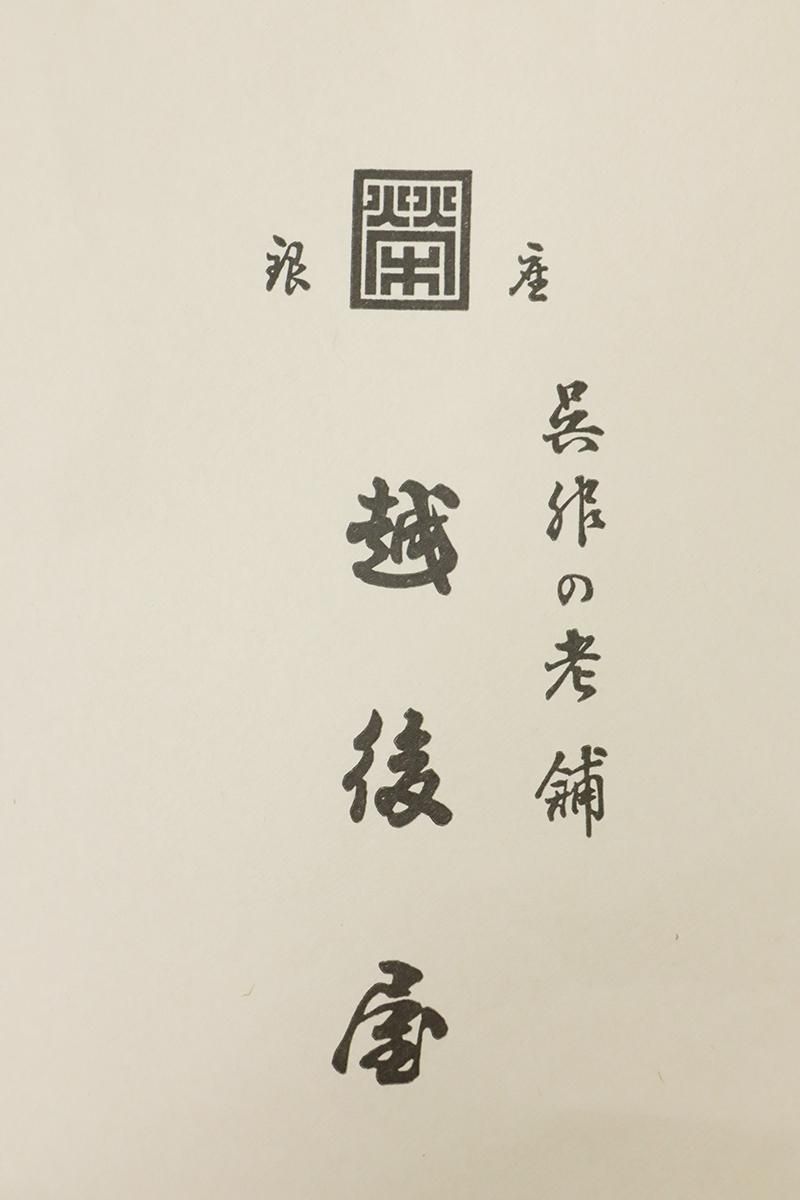 銀座
榮
呉服の老舗
越後屋